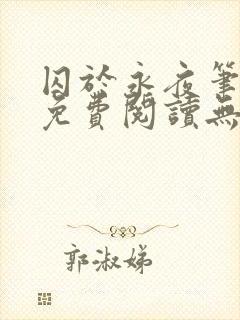 囚於永夜筆
免費閱讀無
郭淑娣